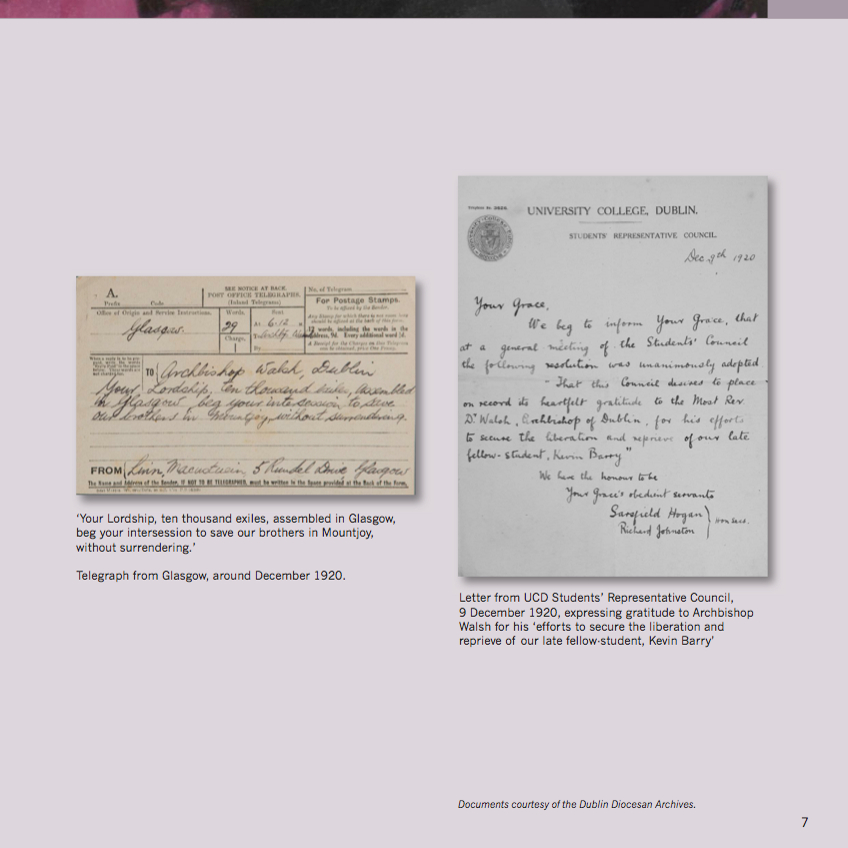 A.
Prefix Code
Office of Origin and Service Instructions.
Glasgow.
SEE NOTICE AT BACK.
POST OFFICE TELEGRAPHS.
(Inland Telegrams.)
Words.
29
Charge.
Sent
At 6-12
To
By
No. of Telegram
For Postage Stamps.
To be affixed by the Sender.
12 words, including the words in the
address, 9d. Every additional word ½d.
TO Archbishop Walsh, Dublin
Your Lordship, ten thousand exiles, assembled
in Glasgow beg your intersession to save
our brothers in Mountjoy, without surrendering.
FROM Drive Glasgow
The Name and Address of the Sender, IF NOT TO BE TELEGRAPHED, must be written in the Space provided at the Back of the Form.
‘Your Lordship, ten thousand exiles, assembled in Glasgow,
beg your intersession to save our brothers in Mountjoy,
without surrendering.’
Telegraph from Glasgow, around December 1920.
UNIVERSITY COLLEGE, DUBLIN.
STUDENTS' REPRESENTATIVE COUNCIL.
Dec. 9th 1920
Your Grace,
We beg to inform Your Grace, that
at a general meeting of the Students' Council
the following resolution was unanimously adopted
"That this Council desires to place
on record its heartfelt gratitude to the Most Rev.
Dr Walsh, Archbishop of Dublin, for his efforts
to secure the liberation and reprieve of our late
fellow-student, Kevin Barry"
We have the honour to be
Your Grace's obedient servants
Sarsfield Hogan
Richard Johnston
Hon Secs.
Letter from UCD Students’ Representative Council,
9 December 1920, expressing gratitude to Archbishop
Walsh for his ‘efforts to secure the liberation and
reprieve of our late fellow-student, Kevin Barry’
Documents courtesy of the Dublin Diocesan Archives.
7